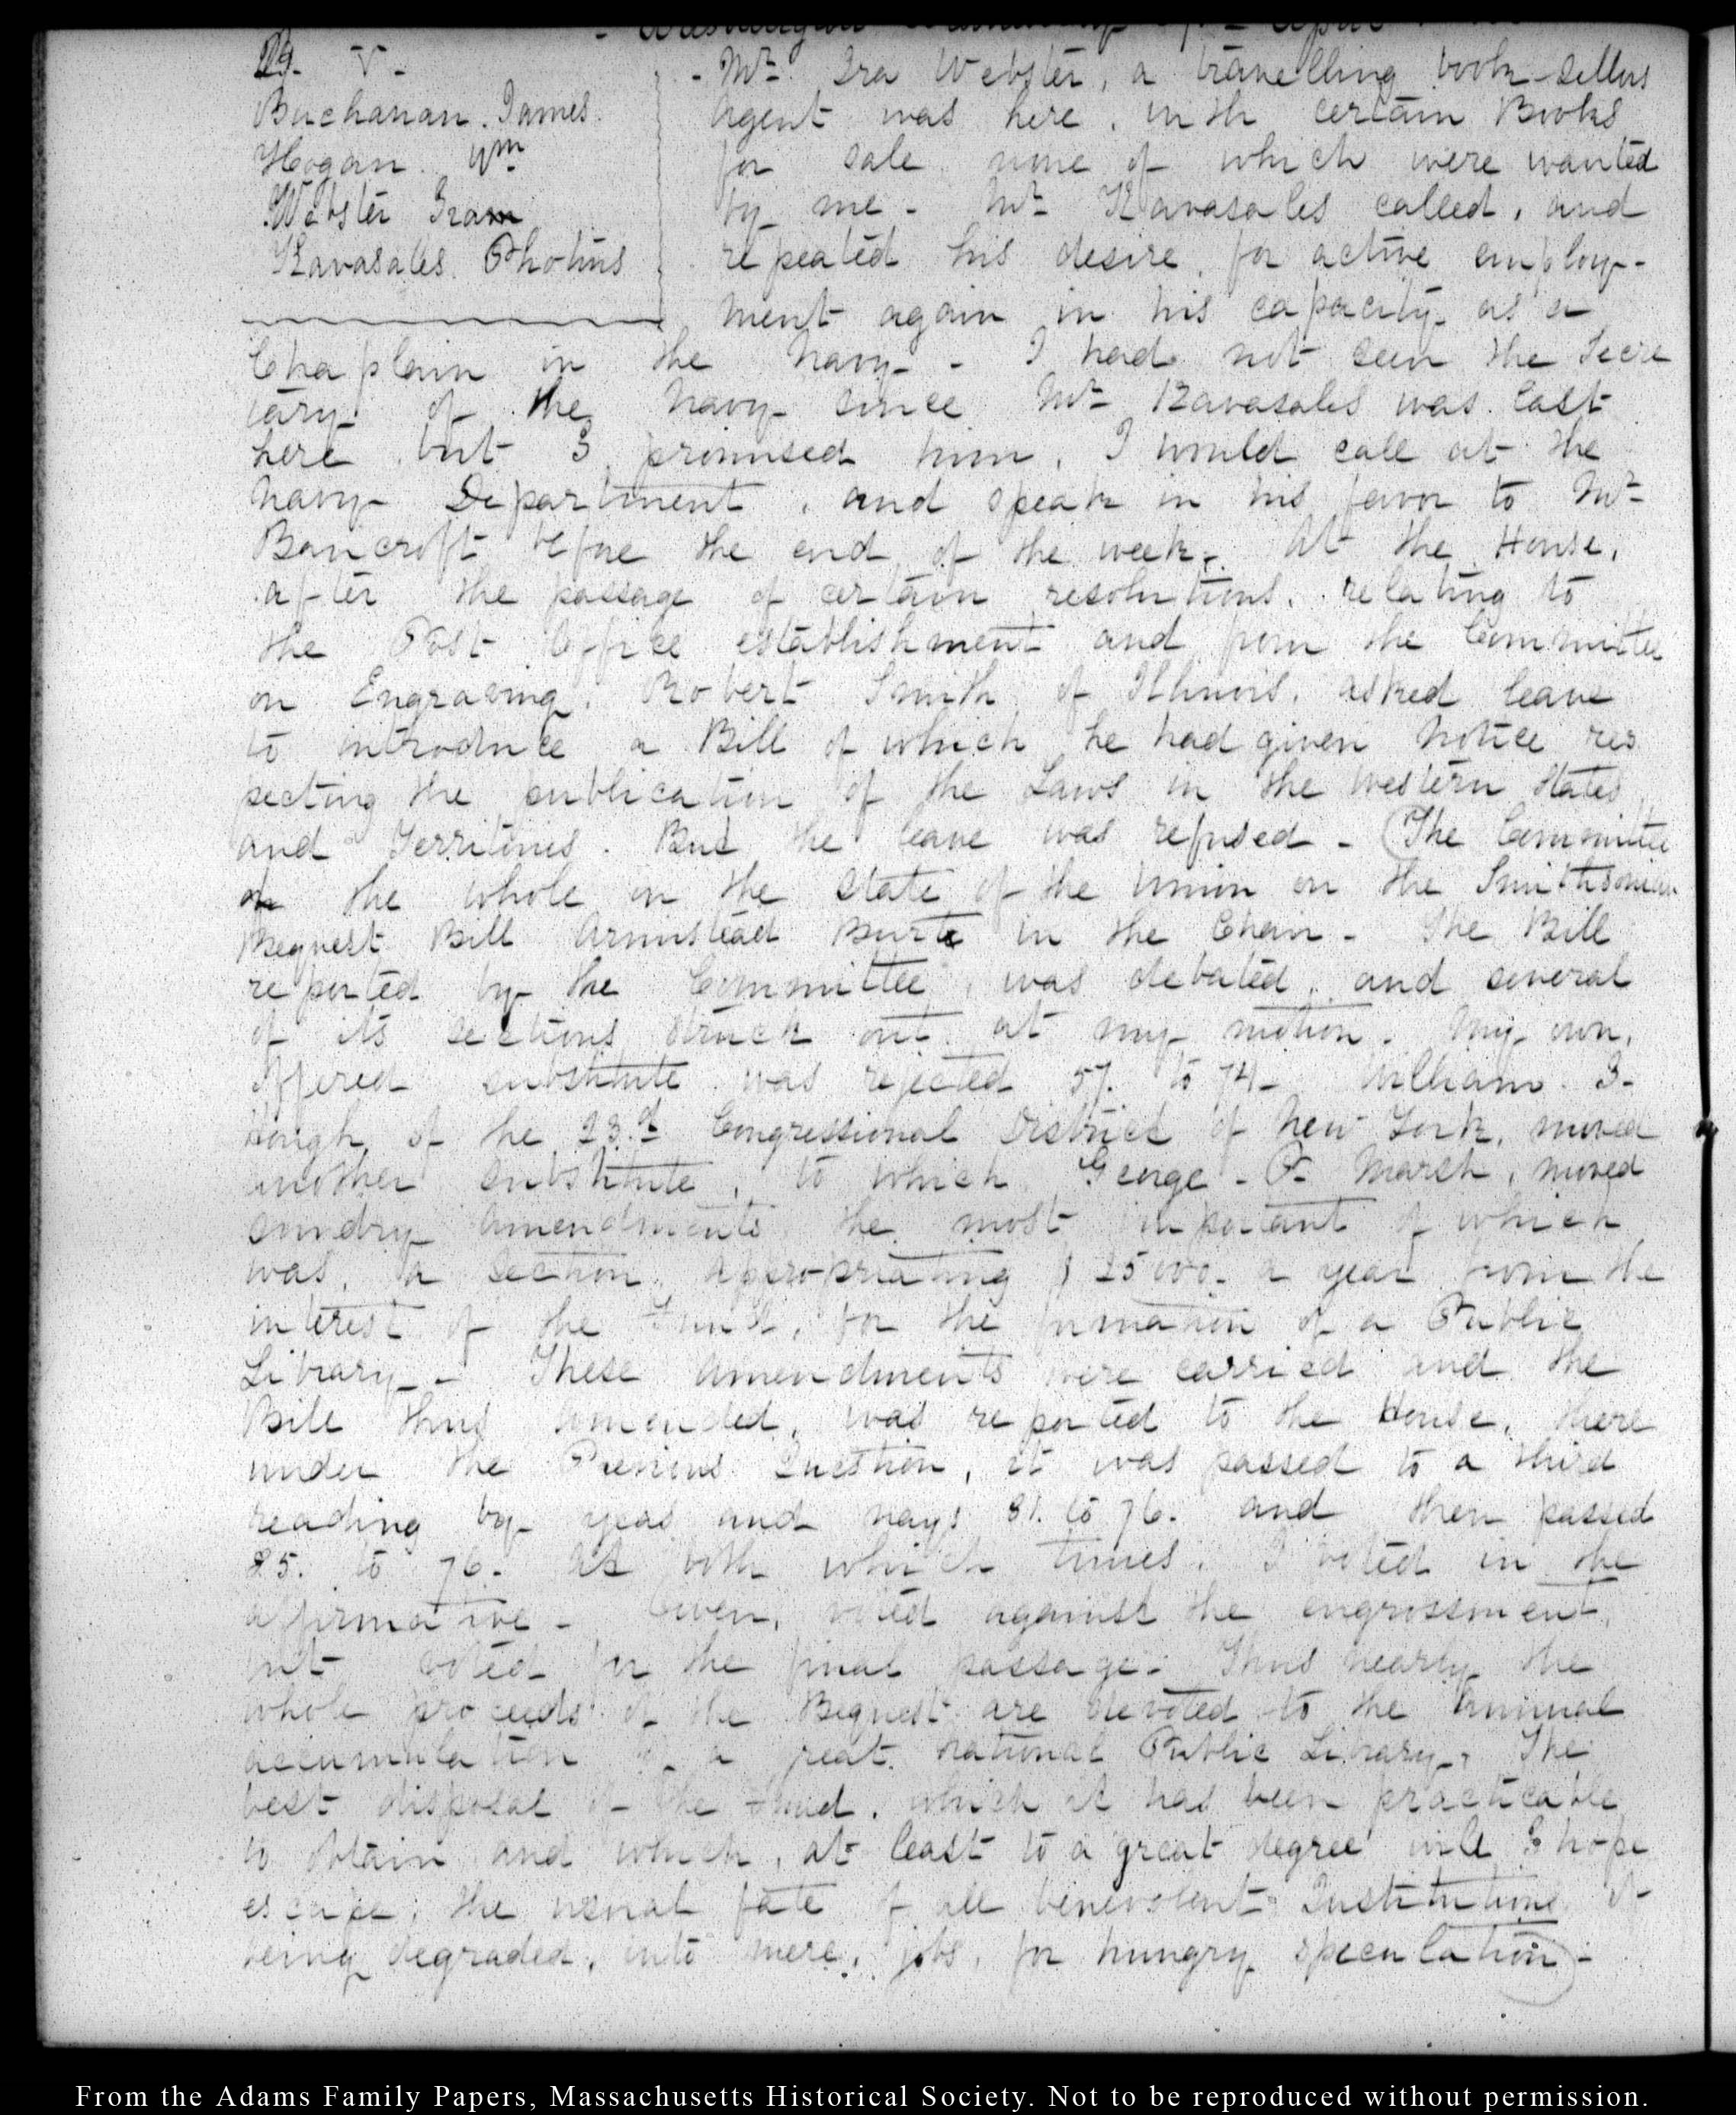 Washington Wednesday 29. April
29. V.
Buchanan. James.
Hogan. Wm
Webster Iram
Kavasales. Photius
- Mr Ira Webster, a travelling book-sellers
agent was here, with certain Books
for sale none of which were wanted
by me - Mr Kavasales called, and
repeated his desire, for active employ-
ment again in his capacity as a
Chaplain in the Navy - I had not seen the Secre
tary of the Navy since Mr Kavasales was last
here but I promised him, I would call at the
Navy Department, and speak in his favor to Mr
Bancroft before the end of the week. At the House,
after the passage of certain resolutions, relating to
the Post Office establishment and from the Committee
on Engraving. Robert Smith of Illinois, asked leave
to introduce a Bill of which he had given Notice res
pecting the publication of the Laws in the Western States
and Territories. But the leave was refused - (The Committee
of the whole on the state of the Union on the Smithsonian
Bequest Bill Armistead Burt in the Chair - The Bill
reported by the Committee, was debated, and several
of its sections struck out at my motion. My own,
offered substitute was rejected 57. to 74 - William. J.
Hough of the 23.d Congressional District of New York, moved
another substitute, to which George - P. Marsh, moved
sundry amendments the most important of which
was, a section, appropriating $ 25000. a year from the
interest of the Fund, for the formation of a Public
Library - These amendments were carried and the
Bill thus amended, was reported to the House, there
under the Previous Question, it was passed to a third
reading by yeas and nays 81. to 76. and then passed
85. to 76. At both which times, I voted in the
affirmative - Owen, voted against the engrossment,
but voted for the final passage. Thus nearly the
whole proceeds of the Bequest are devoted to the annual
accumulation of a great national Public Library. The
best disposal of the fund, which it has been practicable
to obtain and which, at least to a great degree will I hope
escape, the usual fate of all benevolent Institutions of
being degraded, into mere, jobs, for hungry speculation) -
From the Adams Family Papers, Massachusetts Historical Society. Not to be reproduced without permission.